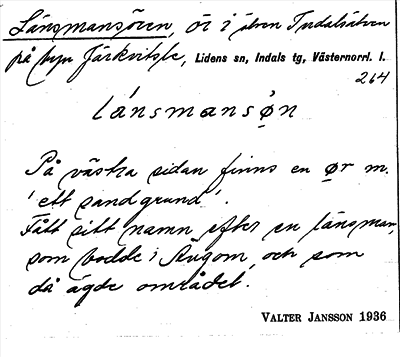 Länsmansören, ör i älven Indalsälven
på byn Järkvitsle, Lidens sn, Indals tg, Västernorrl. l.
264
länsmansǿn
På västra sidan finns en ør m.
'ett sandgrund'.
Fått sitt namn efter en länsman,
som bodde i Ävgom, och som
då ägde området.
VALTER JANSSON 1936